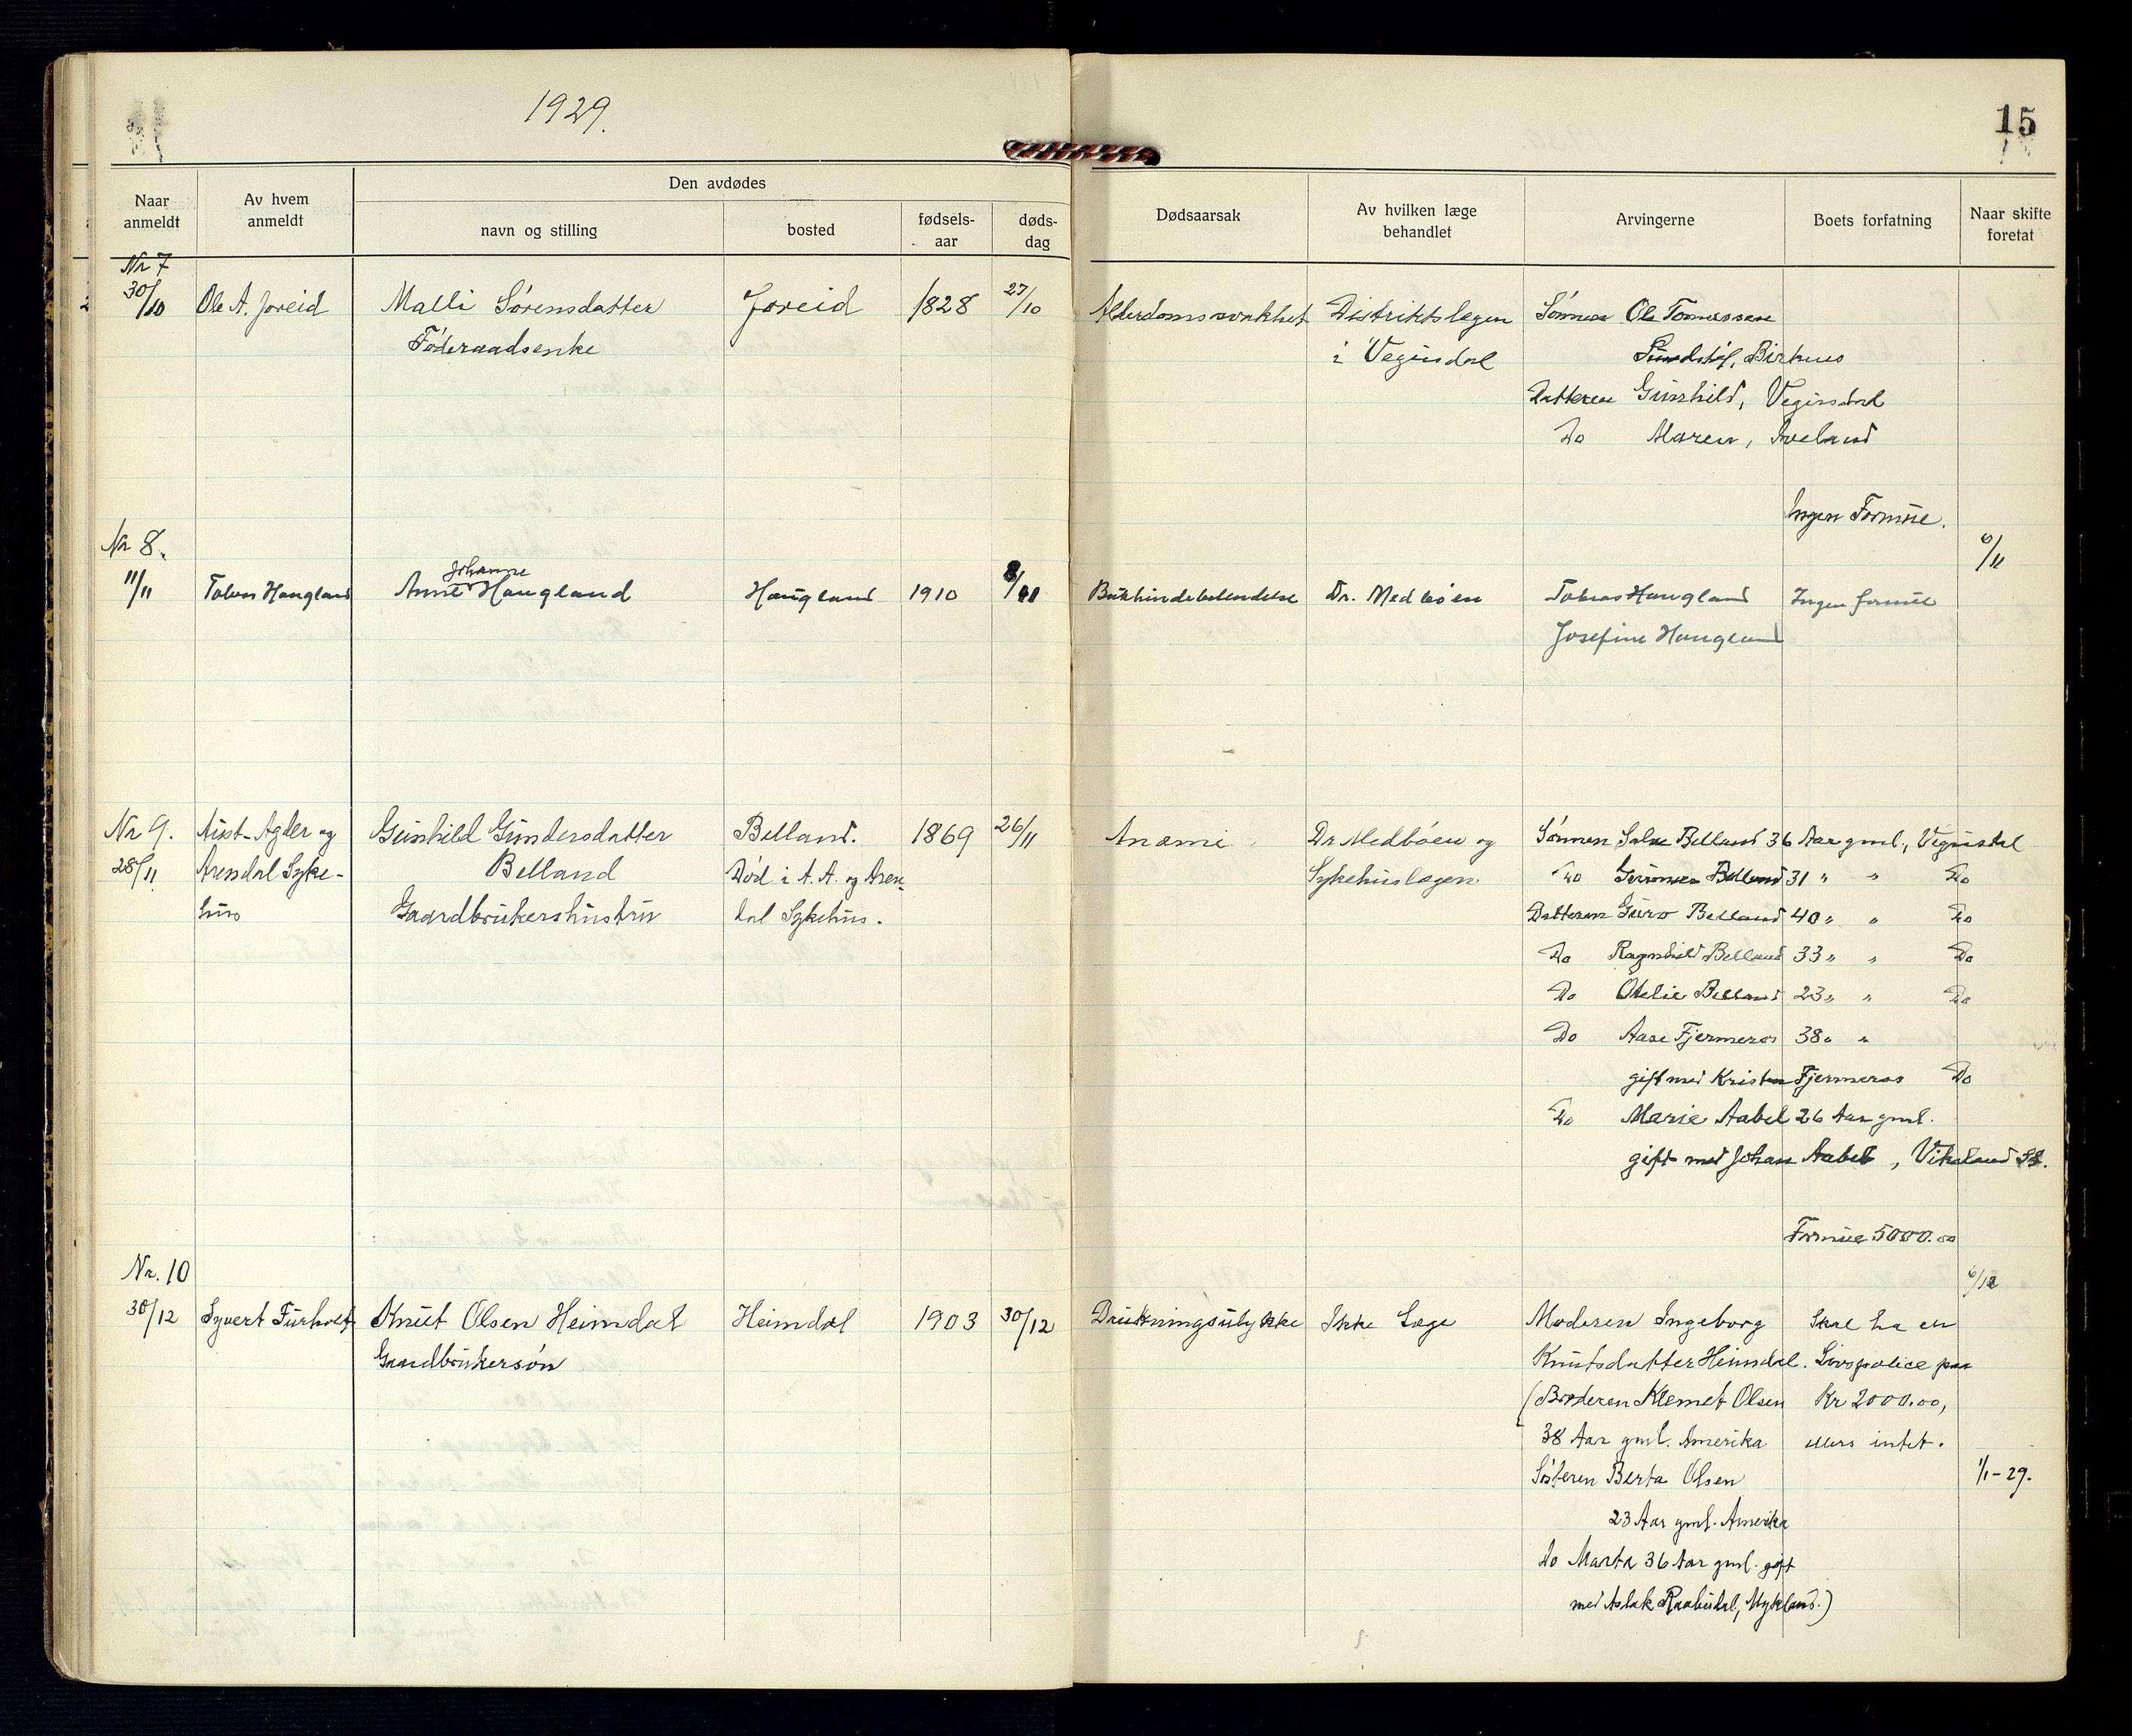 1929.
15
Den avdødes
Naar anmeldt
Av hvem anmeldt
navn og stilling
bosted
fødsels-aar
døds-dag
Dødsaarsak
Av hvilken læge behandlet
Arvingerne
Boets forfatning
Naar skifte foretat
Nr 7
30/10 Ole A. Joreid Malli Sørensdatter Joreid 1828 27/10 Alderdomssvakhet Distriktslegen Sønnen Ole Tomassen
Føderaadsenke i Vegusdal Birknes
Datteren Gunhild, Vegusdal
Do Maren, Iveland
Ingen Formue.
Nr 8.
6/11
Johanne
11/11 Haugland Anne Haugland Haugland 1910 8/11 Bukhindebetendelse Dr. Medbøen Tobias Haugland Ingen formue
Josefine Haugland
Nr 9. Aust-Agder og Gunhild Gundersdatter Belland. 1869 26/11 Anæmi Dr Medbøen og Sønnen Salve Belland 36 Aar gml., Vegusdal
28/11 Arendal Syke- Belland Død i A. A. og Aren- Sykehuslegen Do Belland 31 " " Do
hus Gaardbrukershustru dal Sykehus. Datteren Guro Belland 40 " " Do
Do Ragnhild Belland 33 " " Do
Do Otelie Belland 23 " " Do
Do Aase Fjermeros 38 " "
gift med Kristen Fjermeros Do
Do Marie Aabel 26 Aar gml.
gift med Johan Aabel, Vikeland St.
Formue 5000.00
Nr. 10
6/12
30/12 Syvert Furholt Knut Olsen Heimdal Heimdal 1903 30/12 Drukningsulykke Ikke Læge Moderen Ingeborg Skal ha en
Gaardbrukersøn Knutsdatter Heimdal. Livspolice paa
(Broderen Klemet Olsen Kr 2000.00,
38 Aar gml. Amerika ellers intet.
Søsteren Berta Olsen 1/1-29.
23 Aar gml. Amerika
Do Marta 36 Aar gml. gift
med Aslak Raabudal, Mykland.)